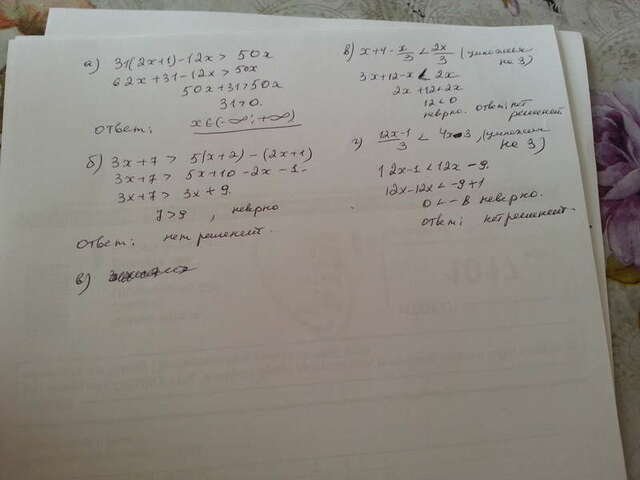 а) 31(2x+1)-12x > 50x
62x+31-12x > 50x
50x+31>50x
31>0.
ответ: x∈(-∞;+∞)
б) 3x+7 > 5(x+2)-(2x+1)
3x+7> 5x+10-2x-1.
3x+7> 3x+9.
7>9 , неверно
ответ: нет решений.
в)
в) x+4-x/3 < 2x/3 (умножаем
на 3)
3x+12-x < 2x
2x+12<2x
12<0
неверно. ответ: нет
решений.
г) 12x-1/3 < 4x-3, (умножаем
на 3)
12x-1<12x-9.
12x-12x<-9+1
0<-8 неверно.
ответ: нет решений.